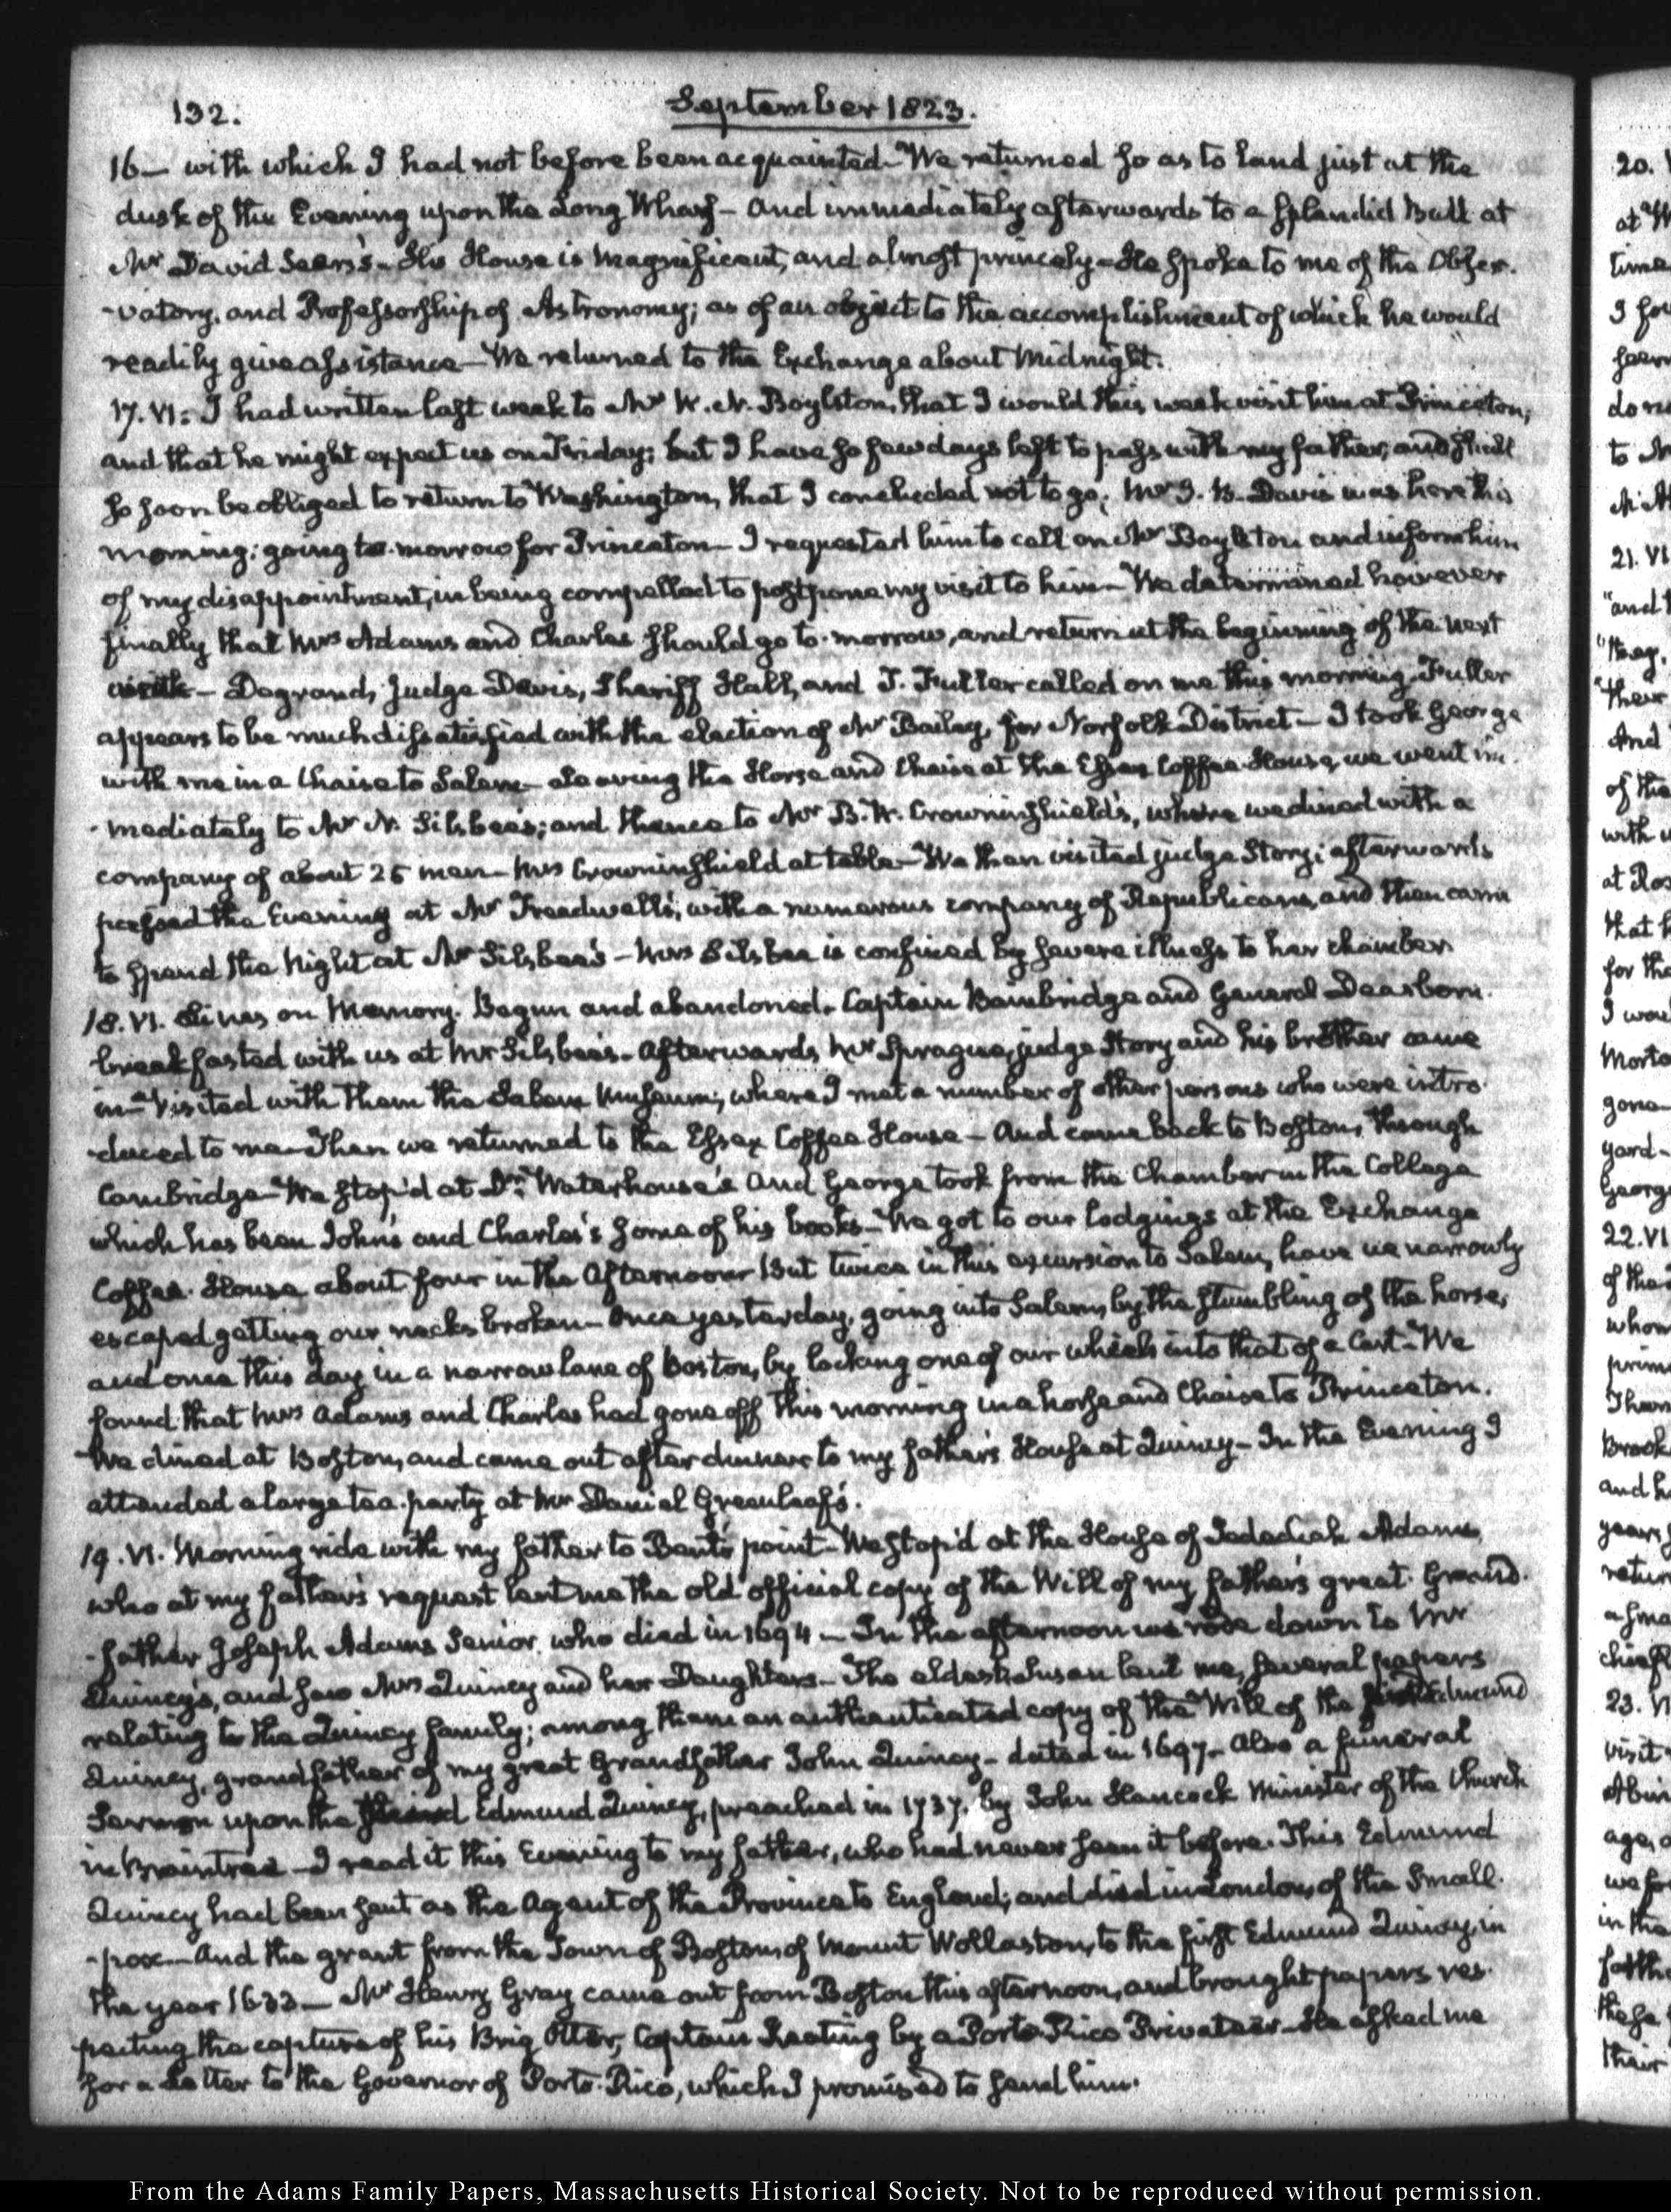 132.
September 1823.
16— with which I had not before been acquainted— We returned so as to land just at the
dusk of the Evening upon the Long Wharf— And immediately afterwards to a splendid Ball at
Mr David Sears's— His House is magnificent, and almost princely— He spoke to me of the Obser-
-vatory, and Professorship of Astronomy; as of an object to the accomplishment of which he would
readily give assistance— We returned to the Exchange about Midnight.
17. VI: I had written last week to Mr W. N. Boylston, that I would this week visit him at Princeton,
and that he might expect us on Friday; but I have so few days left to pass with my father, and shall
so soon be obliged to return to Washington, that I concluded not to go. Mr I. P. Davis was here this
morning: going to-morrow for Princeton— I requested him to call on Mr Boylston and inform him
of my disappointment, in being compelled to postpone my visit to him— We determined however
finally that Mrs Adams and Charles should go to-morrow, and return at the beginning of the next
week— Degrand, Judge Davis, Sheriff Hall, and T. Fuller called on me this morning. Fuller
appears to be much dissatisfied with the election of Mr Bailey, for Norfolk District— I took George
with me in a Chaise to Salem— Leaving the Horse and Chaise at the Essex Coffee-House, we went im-
-mediately to Mr N. Silsbee's; and thence to Mr B. W. Crowninshield's, where we dined with a
company of about 25 men— Mrs Crowninshield at table— We then visited judge Story; afterwards
passed the Evening at Mr Treadwell's, with a numerous company of Republicans, and then came
to spend the Night at Mr Silsbee's— Mrs Silsbee is confined by severe illness to her chamber.
18. VI. Lines on Memory. Begun and abandoned. Captain Bainbridge and General Dearborn
breakfasted with us at Mr Silsbee's. Afterwards Mr Sprague, judge Story and his brother came
in— Visited with them the Salem Museum, where I met a number of other persons who were intro-
-duced to me— Then we returned to the Essex Coffee House— And came back to Boston, through
Cambridge— We stop'd at Dr. Waterhouse's And George took from the Chamber in the College
which has been John's and Charles's some of his books— We got to our lodgings at the Exchange
Coffee-House about four in the Afternoon— But twice in this excursion to Salem, have we narrowly
escaped getting our necks broken— Once yesterday, going into Salem, by the stumbling of the horse,
and once this day in a narrow lane of Boston, by locking one of our wheels into that of a Cart— We
found that Mrs Adams and Charles had gone off this morning in a horse and Chaise to Princeton.
We dined at Boston, and came out after dinner to my father's House at Quincy— In the Evening I
attended a large tea-party at Mr Daniel Greenleaf's.
19. VI. Morning ride with my father to Bent's point— We stop'd at the House of Jedediah Adams,
who at my father's request lent me the old official copy of the Will of my father's great-Grand-
-father Joseph Adams Senior, who died in 1694— In the afternoon we rode down to Mr
Quincy's, and saw Mrs Quincy and her Daughters— The eldest Susan lent me, several papers
relating to the Quincy family; among them an authenticated copy of the Will of the Edmund
Quincy, grandfather of my great Grandfather John Quincy— dated in 1697— Also a funeral
Sermon upon the Edmund Quincy, preached in 1737, by John Hancock Minister of the Church
in Braintree— I read it this Evening to my father, who had never seen it before. This Edmund
Quincy had been sent as the Agent of the Province to England; and died in London, of the Small-
-pox— And the grant from the Town of Boston, of Mount Wollaston, to the first Edmund Quincy, in
the year 1633— Mr Henry Gray came out from Boston this afternoon, and brought papers res-
pecting the capture of his Brig Otter, Captain Keating by a Porto-Rico Privateer— He asked me
for a Letter to the Governor of Porto-Rico, which I promised to send him.
From the Adams Family Papers, Massachusetts Historical Society. Not to be reproduced without permission.